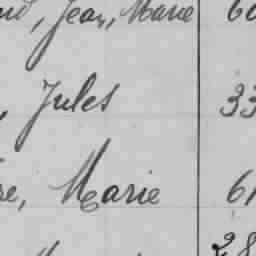 , Jean, Marie 60
, Jules 33
re, Marie 61
28